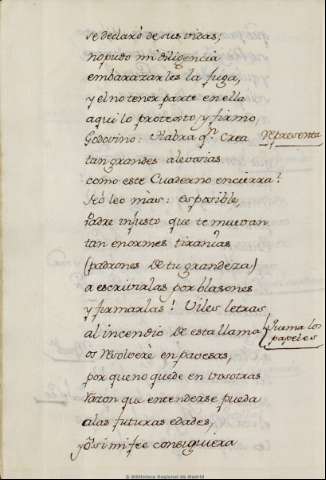 se declaro de sus vidas;
no pudo mi diligencia
embarazarles la fuga,
y el no tener parte en ella
aqui lo protexto, y firmo,
Godovino: Habra qn crea Representa
tan grandes alevosias
como este Cuaderno encierra?
leo mas: es posible,
Padre injusto que te muevan
tan enormes tiranias
(padrones de tu grandeza)
a escrivirlas por blasones
y firmarlas! Viles letras
al incendio de esta llama (Quema los
papeles
os resolvere en pavesas,
por que no quede en vosotras
razon que entenderse pueda
a las futuras edades,
y si mi fee consiguiera
© Biblioteca Regional de Madrid